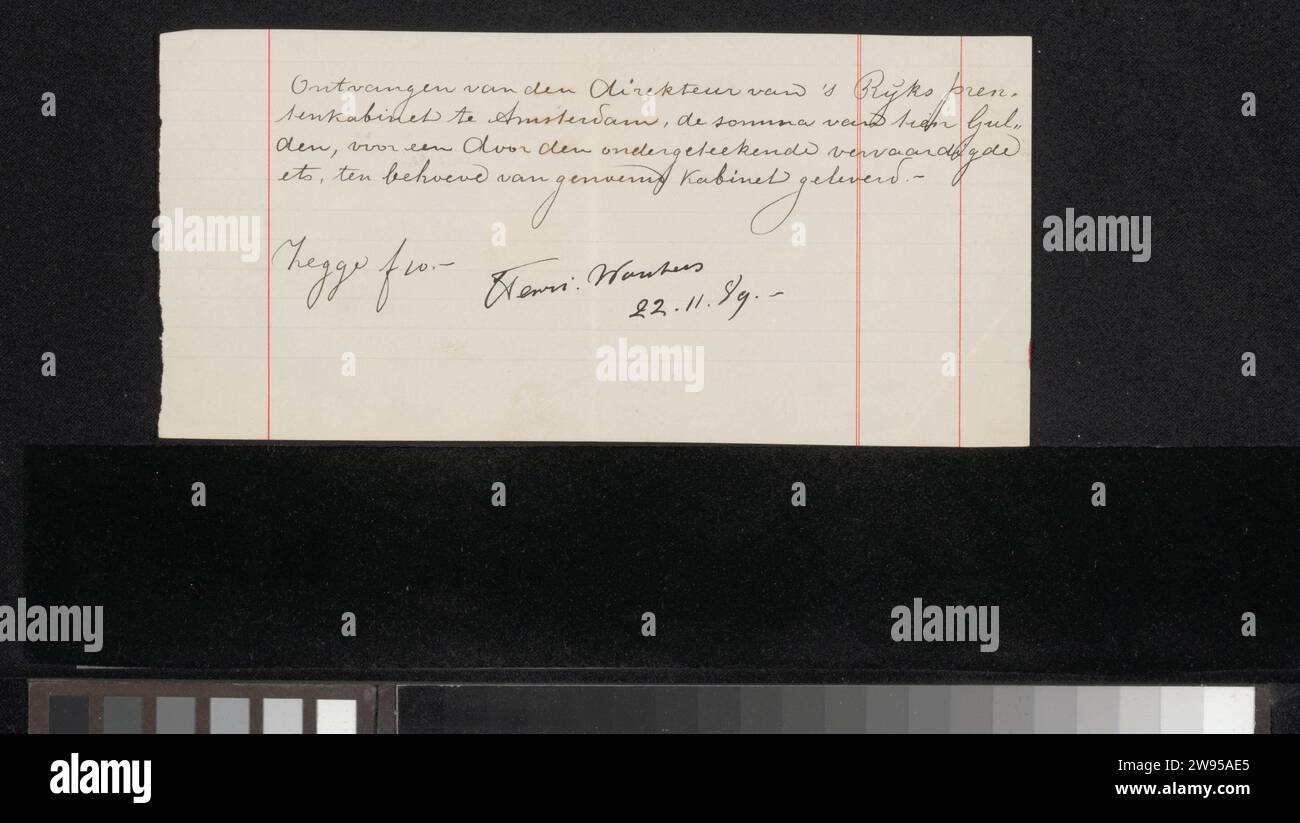 Ontvangen van den direkteur van 's Ryks pren-
tenkabinet te Amsterdam, de somma van tien Gul„
den, voor een door den ondergeteekende vervaardigde
ets, ten behoeve van genoemd kabinet geleverd.-
Zegge f 10.-
Henri. Wouters
22.11.89.-
alamy
alamy
alamy
alamy
alamy
a
a
a
a
a
a
a
a
a
a
a
a
a
a
alamy
Image ID: 2W95AE5
www.alamy.com